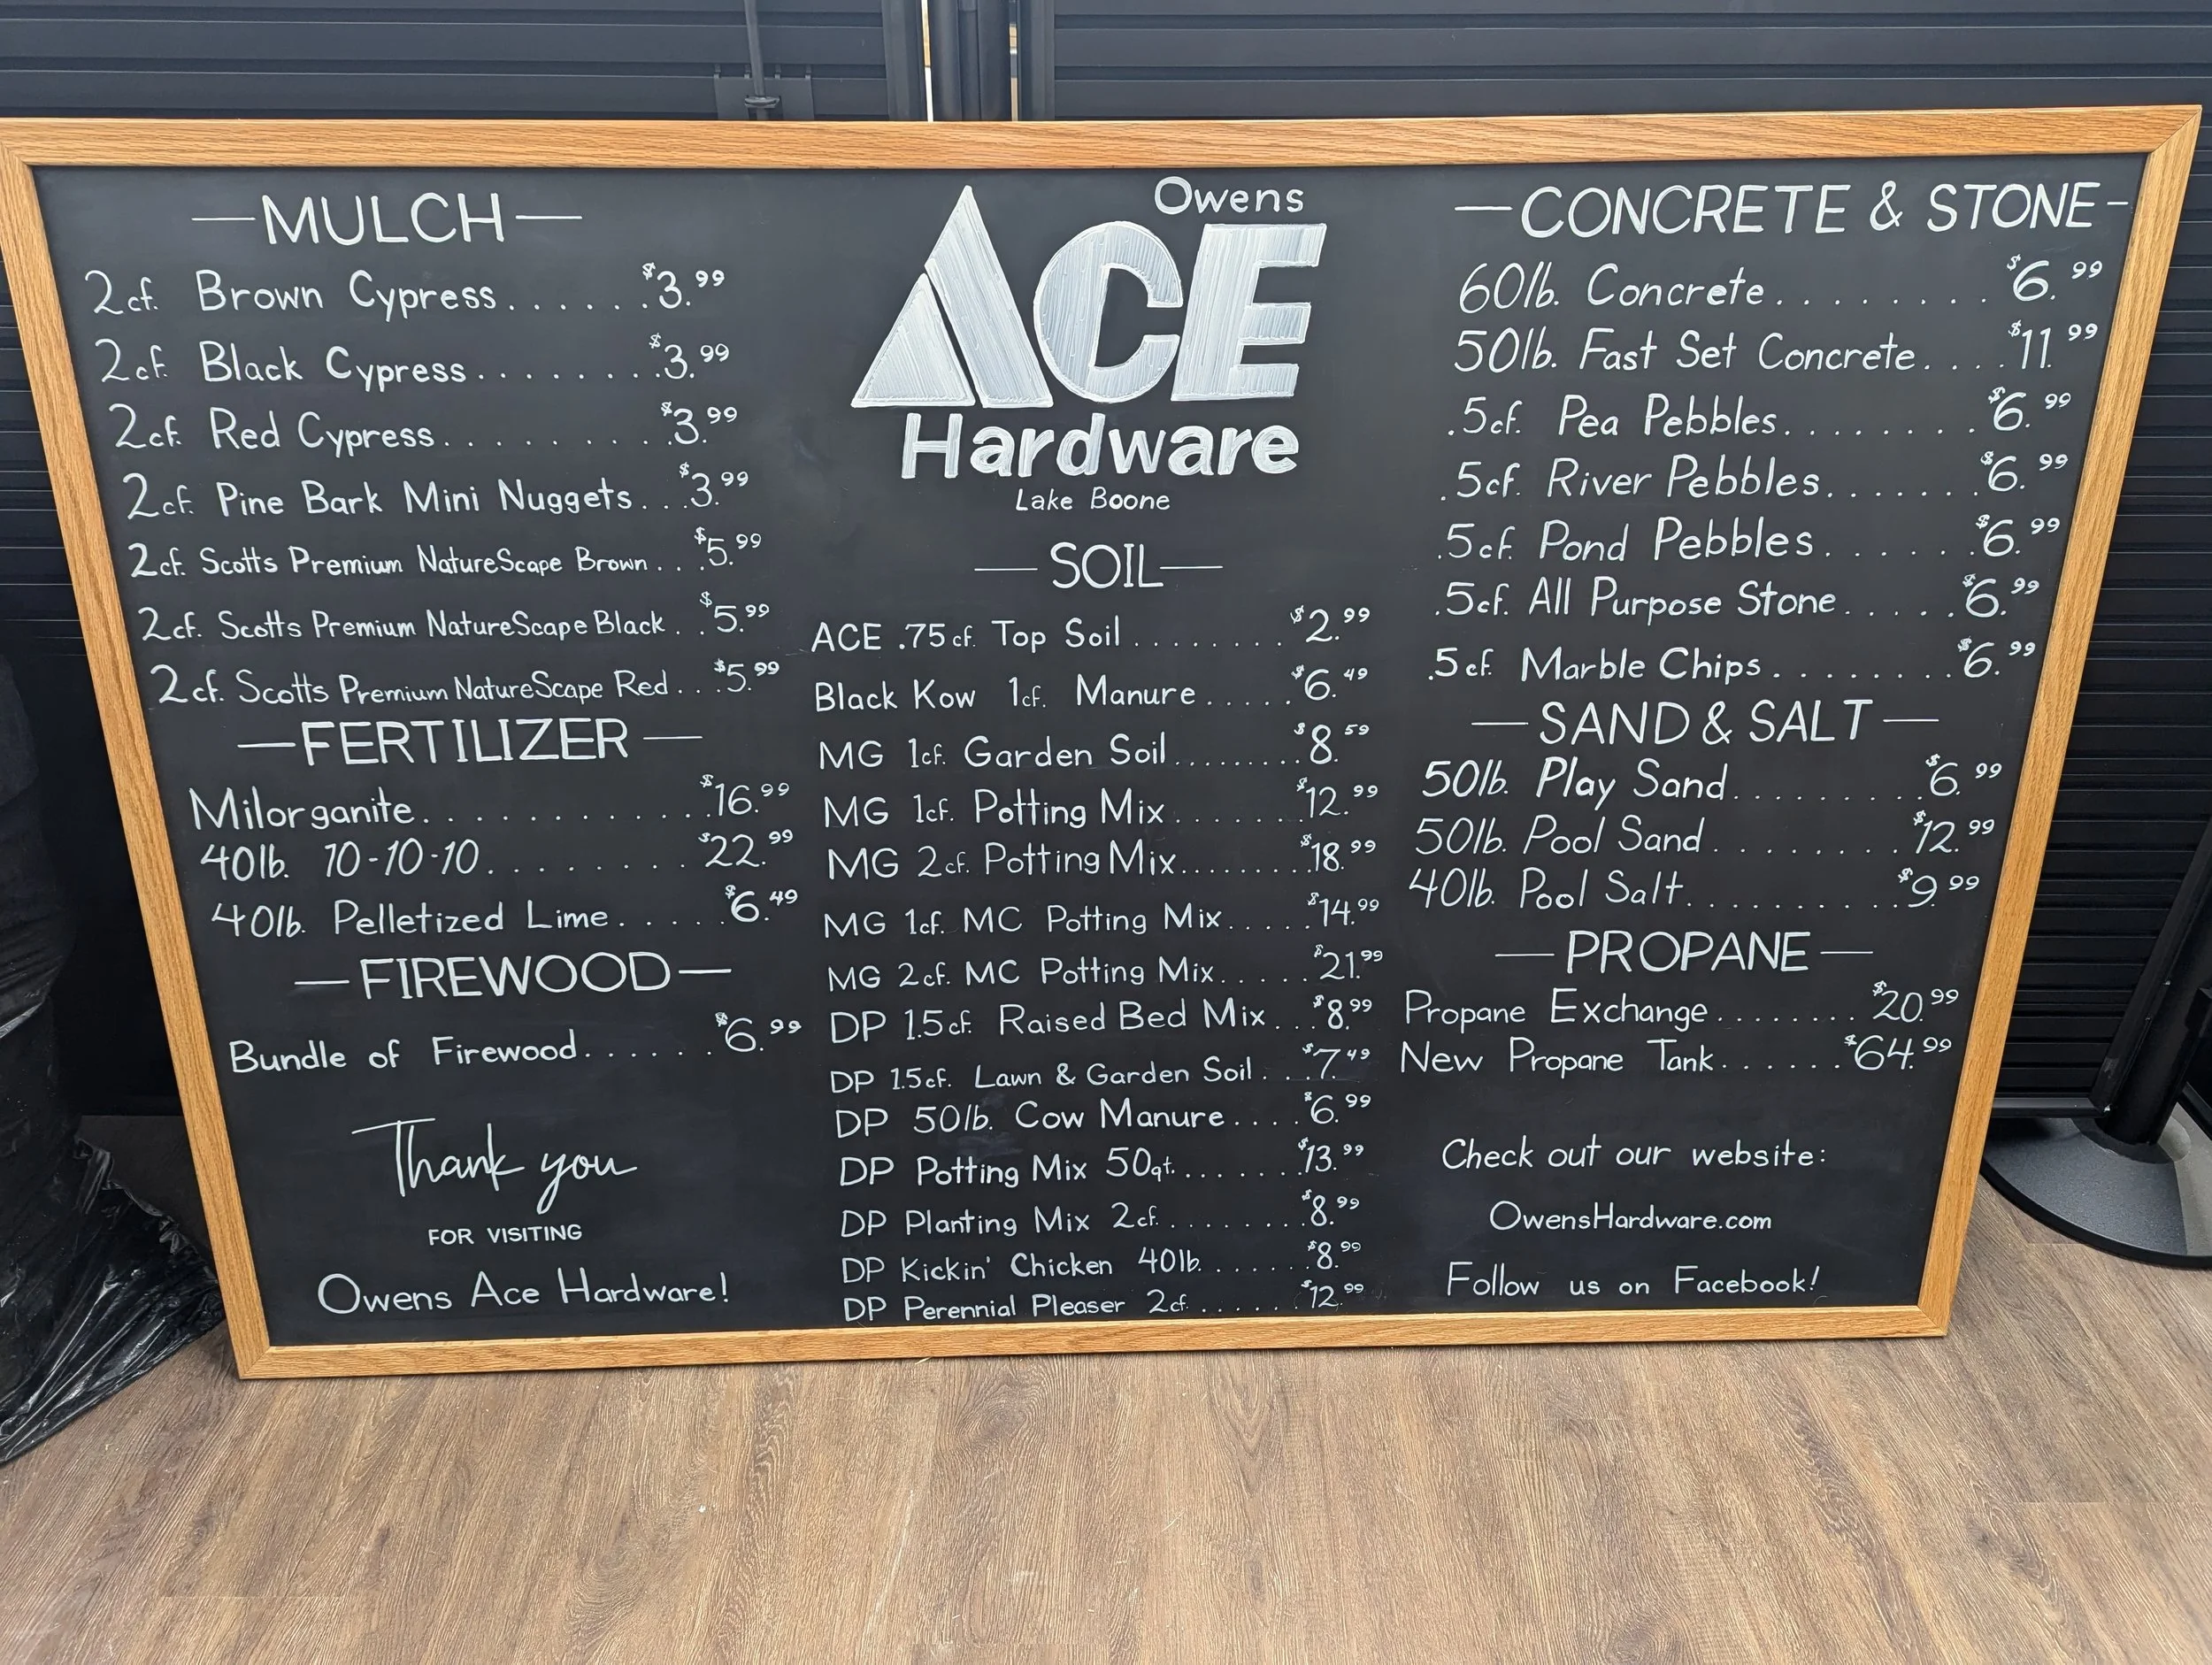 —MULCH—
2cf. Brown Cypress......$3.99
2cf. Black Cypress........$3.99
2cf. Red Cypress.........$3.99
2cf. Pine Bark Mini Nuggets...$3.99
2cf. Scotts Premium NatureScape Brown...$5.99
2cf. Scotts Premium NatureScape Black..$5.99
2cf. Scotts Premium NatureScape Red...$5.99
—FERTILIZER—
Milorganite............$16.99
40lb. 10-10-10........$22.99
40lb. Pelletized Lime.....$6.49
—FIREWOOD—
Bundle of Firewood......$6.99
Thank you
FOR VISITING
Owens Ace Hardware!
Owens
ACE
Hardware
Lake Boone
—SOIL—
ACE .75cf. Top Soil........$2.99
Black Kow 1cf. Manure.....$6.49
MG 1cf. Garden Soil.........$8.59
MG 1cf. Potting Mix.......$12.99
MG 2cf. Potting Mix.........$18.99
MG 1cf. MC Potting Mix.....$14.99
MG 2cf. MC Potting Mix.....$21.99
DP 1.5cf. Raised Bed Mix...$8.99
DP 1.5cf. Lawn & Garden Soil...$7.49
DP 50lb. Cow Manure....$6.99
DP Potting Mix 50qt.......$13.99
DP Planting Mix 2cf.........$8.99
DP Kickin' Chicken 40lb.......$8.99
DP Perennial Pleaser 2cf.......$12.99
—CONCRETE & STONE-
60lb. Concrete.........$6.99
50lb. Fast Set Concrete....$11.99
.5cf. Pea Pebbles........$6.99
.5cf. River Pebbles.......$6.99
.5cf. Pond Pebbles......$6.99
.5cf. All Purpose Stone.....$6.99
.5cf. Marble Chips........$6.99
—SAND & SALT—
50lb. Play Sand.........$6.99
50lb. Pool Sand.........$12.99
40lb. Pool Salt..........$9.99
—PROPANE—
Propane Exchange........$20.99
New Propane Tank......$64.99
Check out our website:
OwensHardware.com
Follow us on Facebook!